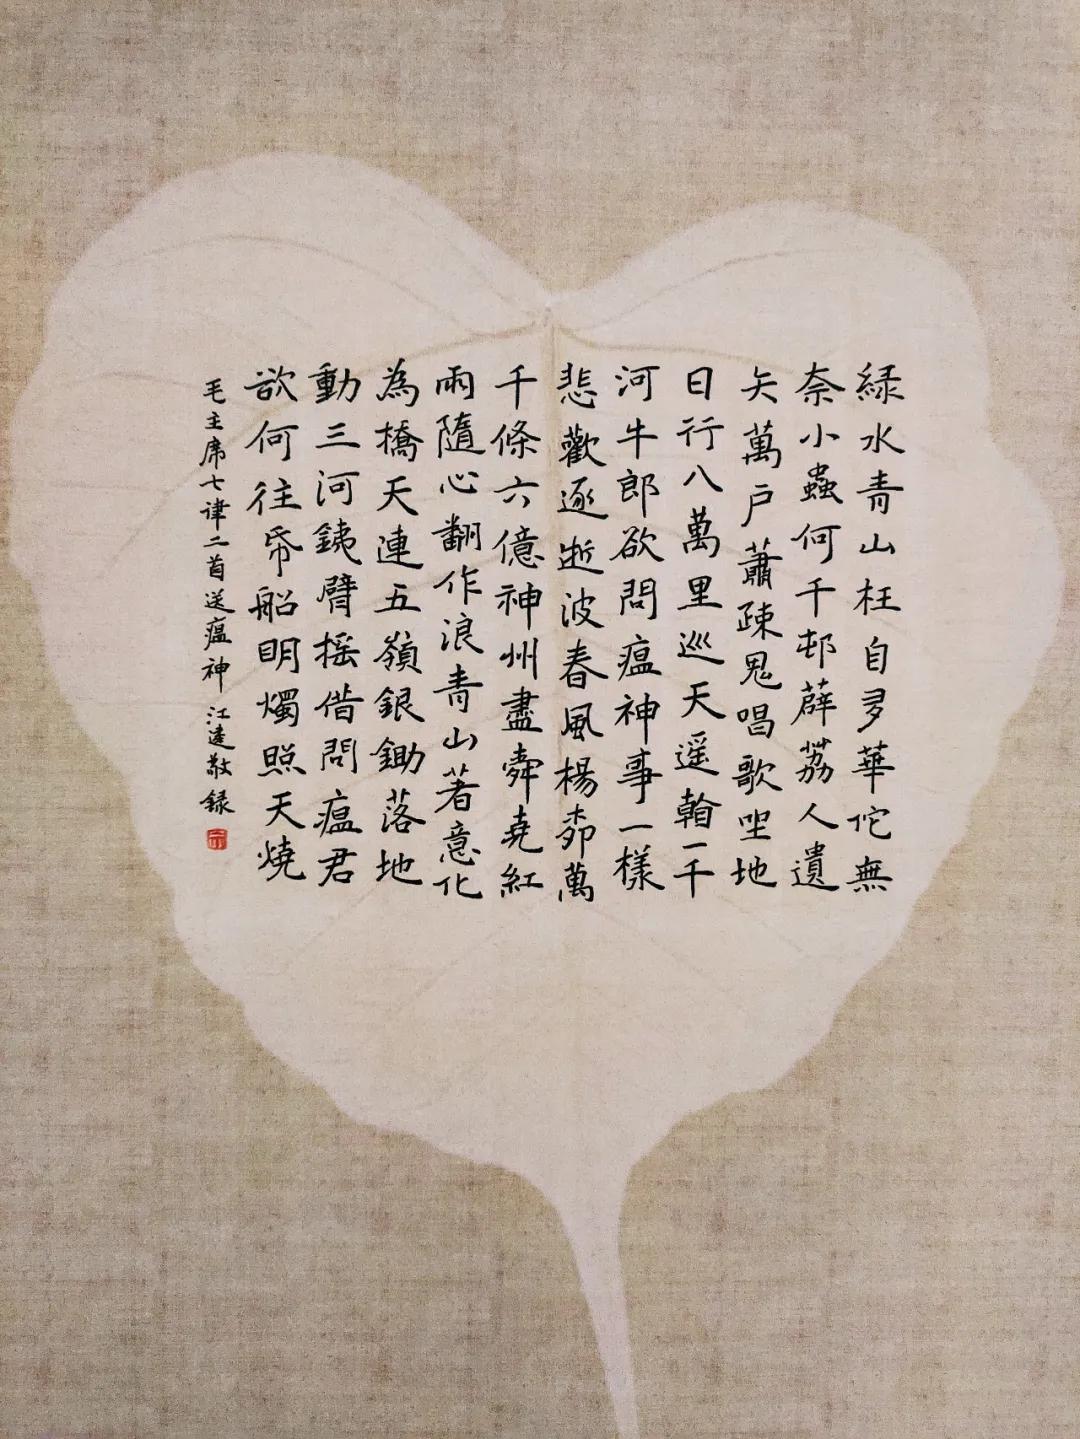 緑水青山枉自多華佗無
奈小蟲何千邨薜荔人遺
矢萬戶蕭疎鬼唱歌坐地
日行八萬里巡天遥翰一千
河牛郎欲問瘟神事一樣
悲歡逐逝波春風楊桺萬
千條六億神州盡舜堯紅
雨隨心翻作浪青山著意化
為橋天連五嶺銀鋤落地
動三河銕臂摇借問瘟君
欲何往帋船明燭照天燒
毛主席七律二首送瘟神 江逵敬録